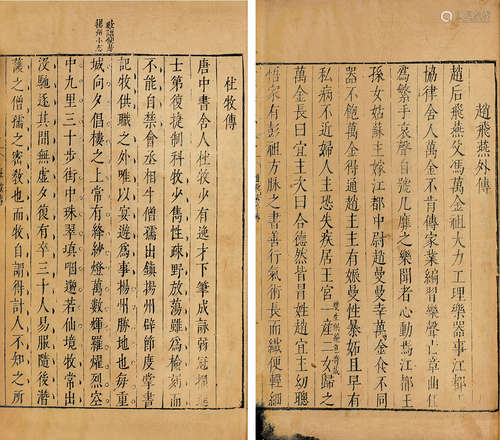 趙飛燕外傳
趙后飛燕父馮萬金祖大力工理樂器事江都王
協律舍人萬金不肯傳家業編習樂聲亡章曲任
為繁手哀聲自號凡靡之樂聞者心動焉江都王
孫女姑蘇主嫁江都中尉趙曼曼幸萬金食不同
器不飽萬金得通趙主主有娠曼性暴妬且早有
私病不近婦人主恐稱疾居王宮一產二女歸之
萬金長曰宜主次曰合德然皆冒姓趙宜主幼聰
悟家有彭祖方脉之書善行氣術長而纖便輕細
杜牧傳
唐中書舍人杜牧少有逸才下筆成詠弱冠擢進
士第復捷制科牧少雋性疎野放蕩雖為檢刻而
不能自禁會丞相牛僧孺出鎮揚州辟節度掌書
記牧供職之外唯以宴遊為事揚州勝地也每重
城向夕倡樓之上常有絳紗燈萬數輝羅燿烈空
中九里三十步街中珠翠填咽邈若仙境牧常出
沒馳逐其間無虛夕復有卒三十人易服隨後潛
護之僧孺之密教也而牧自謂得計人不知之所